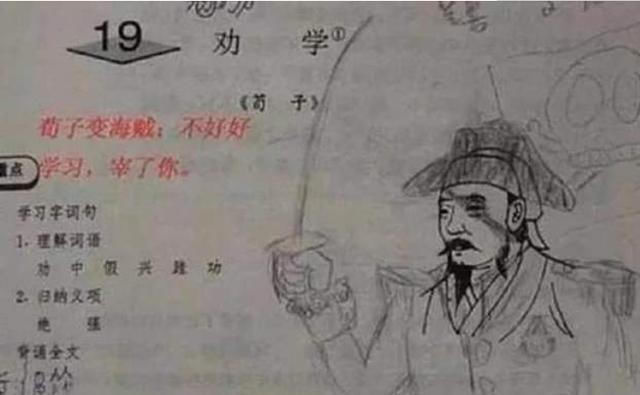 19 劝学①
《荀子》
荀子变海贼：不好好
学习，宰了你。
重点
学习字词句
1. 理解词语
劝 中 假 兴 跬 功
2. 归纳义项
绝 强
背诵全文